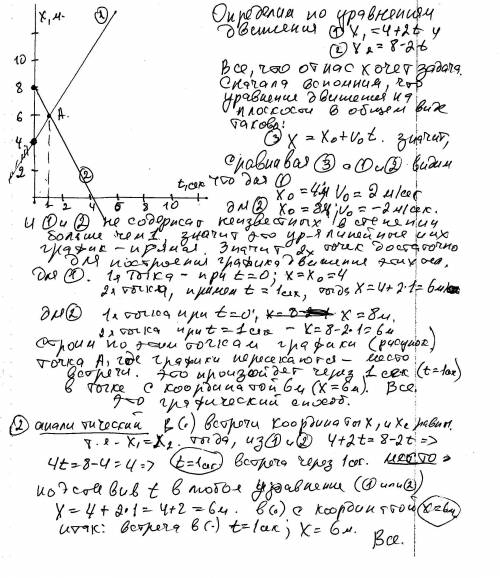 x, м.
①
Определим по уравнениям
движения ① x₁ = 4+2t и
② x₂ = 8-2t
Все, что от нас хочет задача.
Сначала вспомним, что
уравнение движения на
плоскости в общем виде
таково:
③ x = x₀ + v₀t. значит,
сравнивая ③ с ① и ② видим
10
8
6
4
2
A.
②
1 2 5 10
t, сек
что для ①
x₀ = 4м v₀ = 2 м/сек
для ② x₀ = 8м; v₀ = -2 м/сек.
И ① и ② не содержат неизвестных в степени
больше чем 1, значит это ур-я линейные и их
график - прямая. Значит 2х точек достаточно
для построения графика движения
Для ①. 1я точка - при t=0; x=x₀=4
2я точка, примем t = 1сек, тогда x=4+2·1=6м
для ② 1я точка при t=0; x = 8м.
2я точка при t=1сек - x=8-2·1=6м
Строим по этим точкам графики (рисунок)
точка A, где графики пересекаются - место
встречи. Это произойдет через 1 сек (t=1сек)
в точке с координатой 6м (x=6м). Все.
Это графический способ.
② аналитический В(·) встречи координаты x₁ и x₂ равны.
т.е - x₁ = x₂. тогда, из ① и ② 4+2t=8-2t =>
4t=8-4=4 => t=1сек встреча через 1сек. место =>
подставив t в любое уравнение (① или ②)
x = 4+2·1 = 4+2 = 6м. в(·) с координатой x=6м
итак: встреча в(·) t=1сек; x = 6м.
Все.